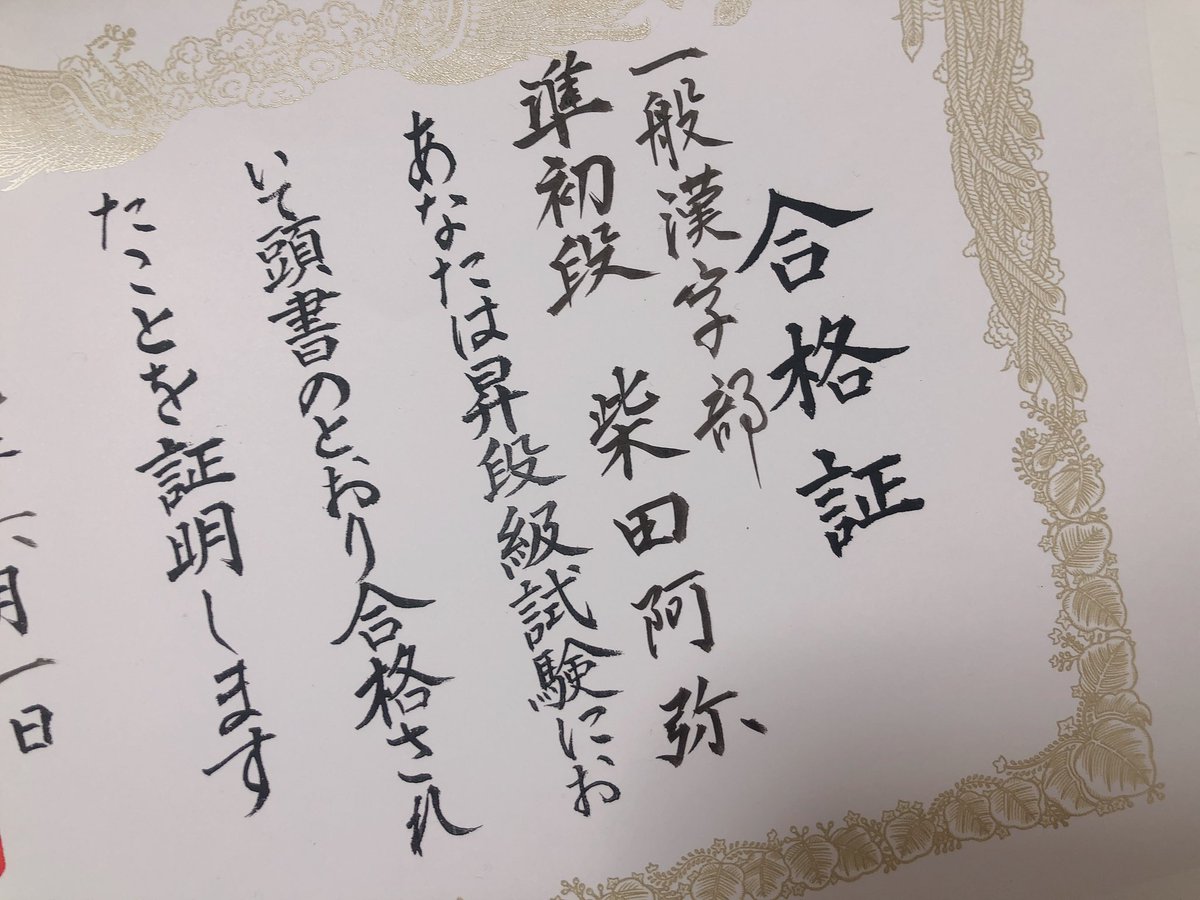 合格証
一般漢字部
準初段 柴田阿弥
あなたは昇段級試験にお
いて頭書のとおり合格され
たことを証明します
六月一日